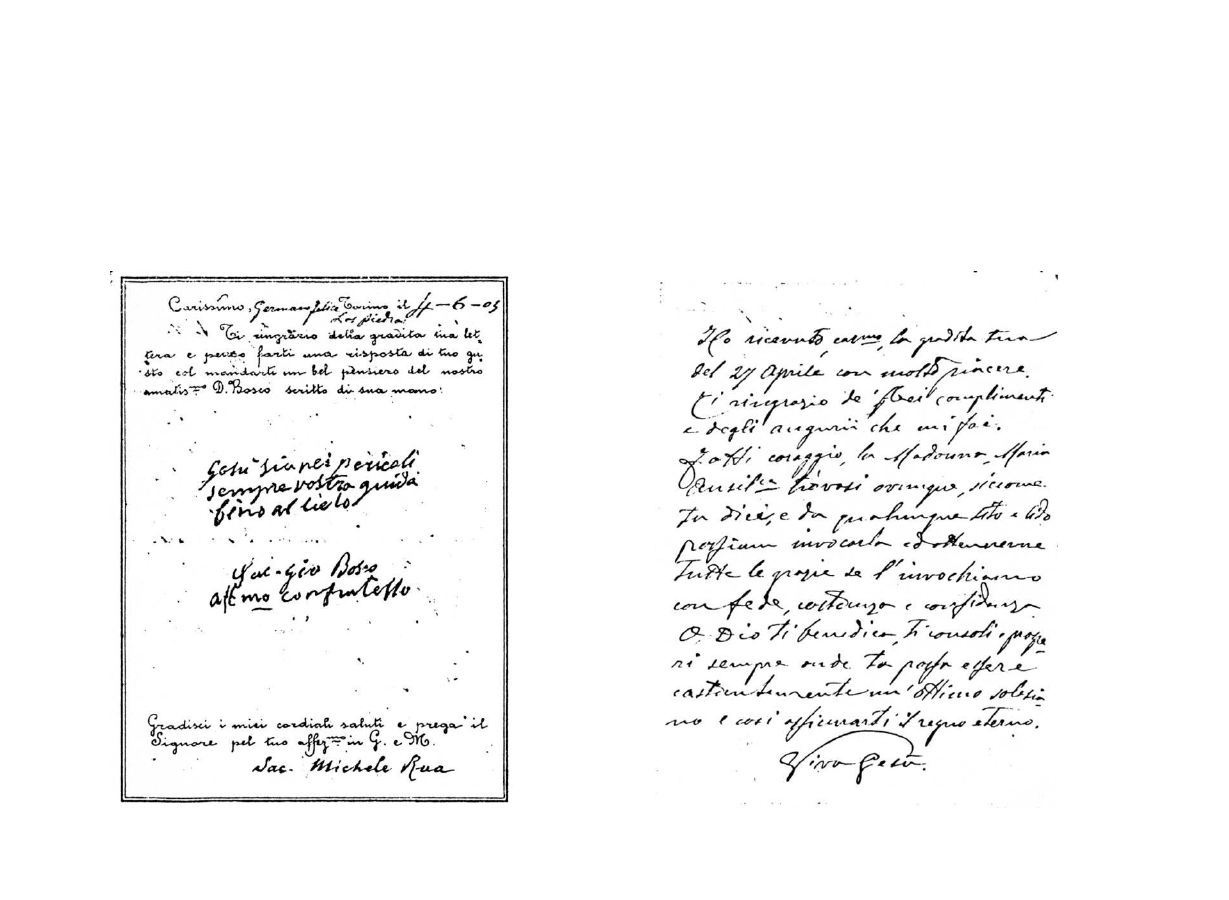 Carissimo, German Felice Torino il 4-6-05
Los Piedra
Ti ringrazio della gradita tua let-
tera e penso farti una risposta di tuo gu-
sto col mandarti un bel pensiero del nostro
amatis.mo D. Bosco scritto di sua mano:
Gesù sia nei pericoli
sempre vostra guida
fino al cielo
Sac. Gio Bosco
aff.mo confratello
Gradisci i miei cordiali saluti e prega il
Signore pel tuo affez.mo in G. e M.
Sac. Michele Rua
Ho ricevuto, carmo, la gradita tua
del 27 Aprile con molto piacere.
Ti ringrazio de' complimenti
e degli augurii che mi fai.
Fatti coraggio, la Madonna, Maria
Ausil.ce trovasi ovunque, siccome
tu dici, e da qualunque sito e lido
possiam invocarla ed ottenerne
tutte le grazie se l'invochiamo
con fede, costanza e confidenza
Dio ti benedica, ti consoli e prospe-
ri sempre onde tu possa essere
costantemente un' ottimo salesia-
no e così assicurarti il regno eterno.
Viva Gesù.